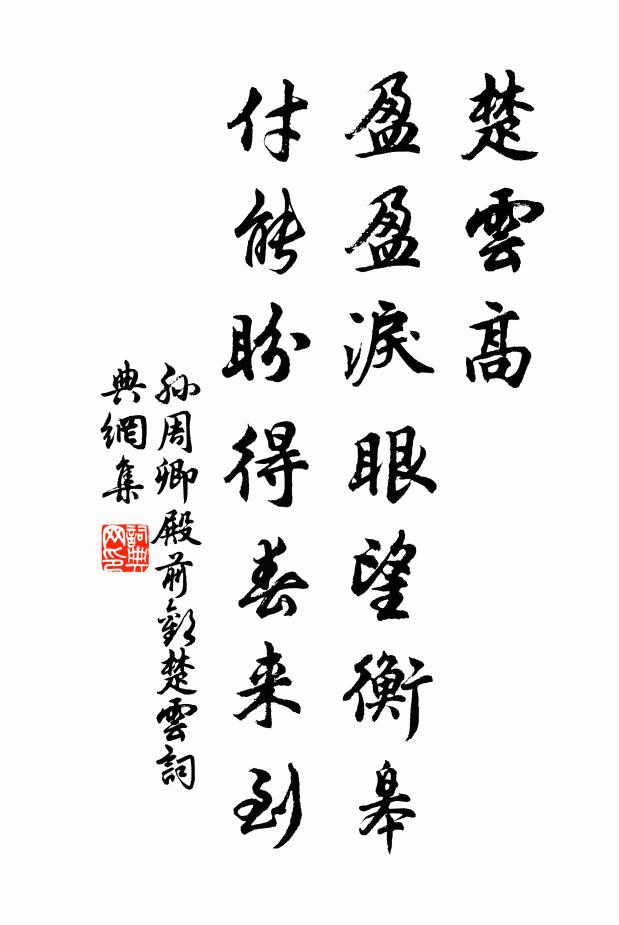 楚雲高
盈盈淚眼望衡皋
付能盼得春来到
孙周卿殿前歡楚雲詞
典網集
詞典网印